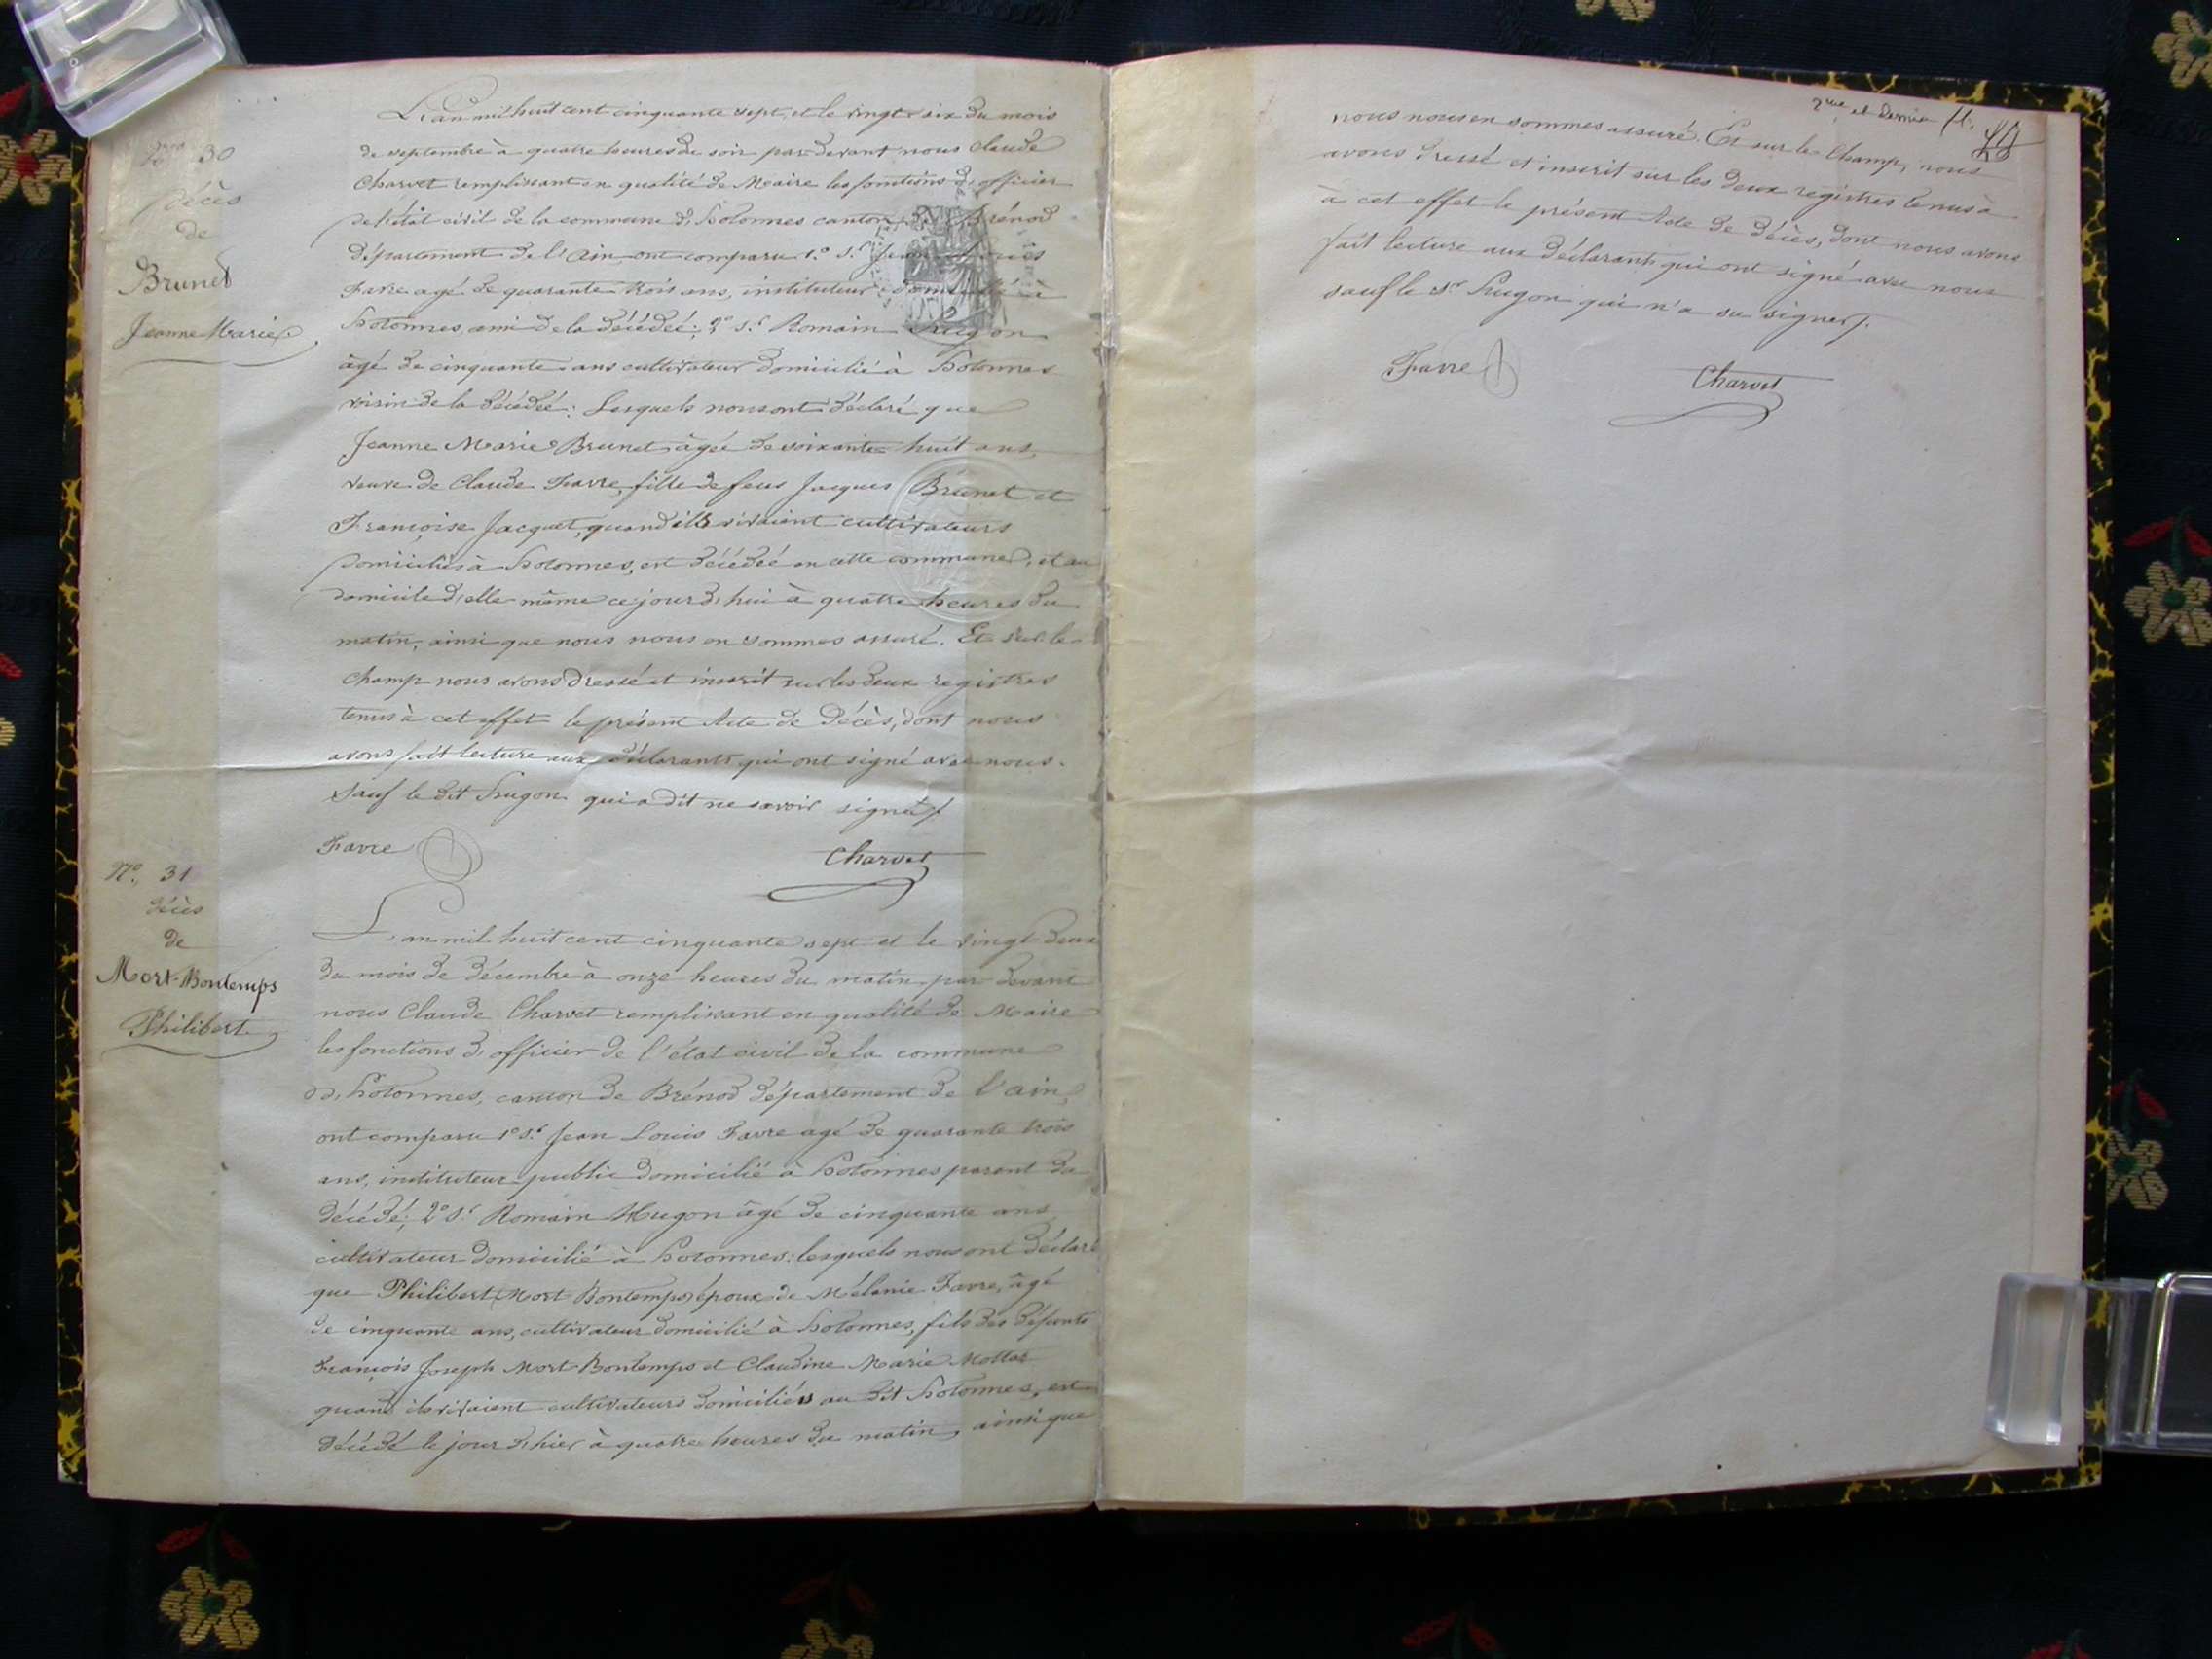 Nro 30
Décès
de
Brunet
Jeanne Marie
L'an mil huit cent cinquante sept, et le vingt six du mois
de septembre à quatre heures du soir par devant nous Claude
Charvet remplissant en qualité de Maire les fonctions d'officier
de l'état civil de la commune d'hotonnes canton de Brénod
département de l'Ain, ont comparu 1° Sr Jean Louis
Favre agé de quarante trois ans, instituteur domicilié à
hotonnes, ami de la décédée; 2° Sr Romain hugon
âgé de cinquante ans cultivateur domicilié à hotonnes
voisin de la décédée: Lesquels nous ont déclaré que
Jeanne Marie Brunet âgée de soixante huit ans,
veuve de Claude Favre, fille de feus Jacques Brunet et
Françoise Jacquet, quand ils vivaient cultivateurs
domiciliés à hotonnes, est décédée en cette commune, et au
domicile d'elle même ce jourd'hui à quatre heures du
matin, ainsi que nous nous en sommes assuré. Et sur le
champ nous avons dressé et inscrit sur les deux registres
tenus à cet effet le présent Acte de Décès, dont nous
avons fait lecture aux déclarants qui ont signé avec nous.
Sauf le dit hugon qui a dit ne savoir signer
Favre Charvet
No. 31
décès
de
Mort-Bontemps
Philibert
L'an mil huit cent cinquante sept et le vingt deux
du mois de décembre à onze heures du matin par devant
nous Claude Charvet remplissant en qualité de Maire
les fonctions d'officier de l'état civil de la commune
d'hotonnes, canton de Brénod département de l'ain,
ont comparu 1° Sr Jean Louis Favre agé de quarante trois
ans, instituteur public domicilié à hotonnes parent du
décédé; 2° Sr Romain Hugon âgé de cinquante ans
cultivateur domicilié à hotonnes: lesquels nous ont déclaré
que Philibert Mort Bontemps époux de Mélanie Favre, âgé
de cinquante ans, cultivateur domicilié à hotonnes, fils des défunts
François Joseph Mort Bontemps et Claudine Marie Mottet
quand ils vivaient cultivateurs domiciliés au dit hotonnes, est
décédé le jour d'hier à quatre heures du matin, ainsi que
2me et dernier ft.
nous nous en sommes assuré. Et sur le Champ, nous
avons dressé et inscrit sur les deux registres tenus à
à cet effet le présent Acte de décès, dont nous avons
fait lecture aux déclarants qui ont signé avec nous
sauf le Sr hugon qui n'a su signer.
Favre Charvet